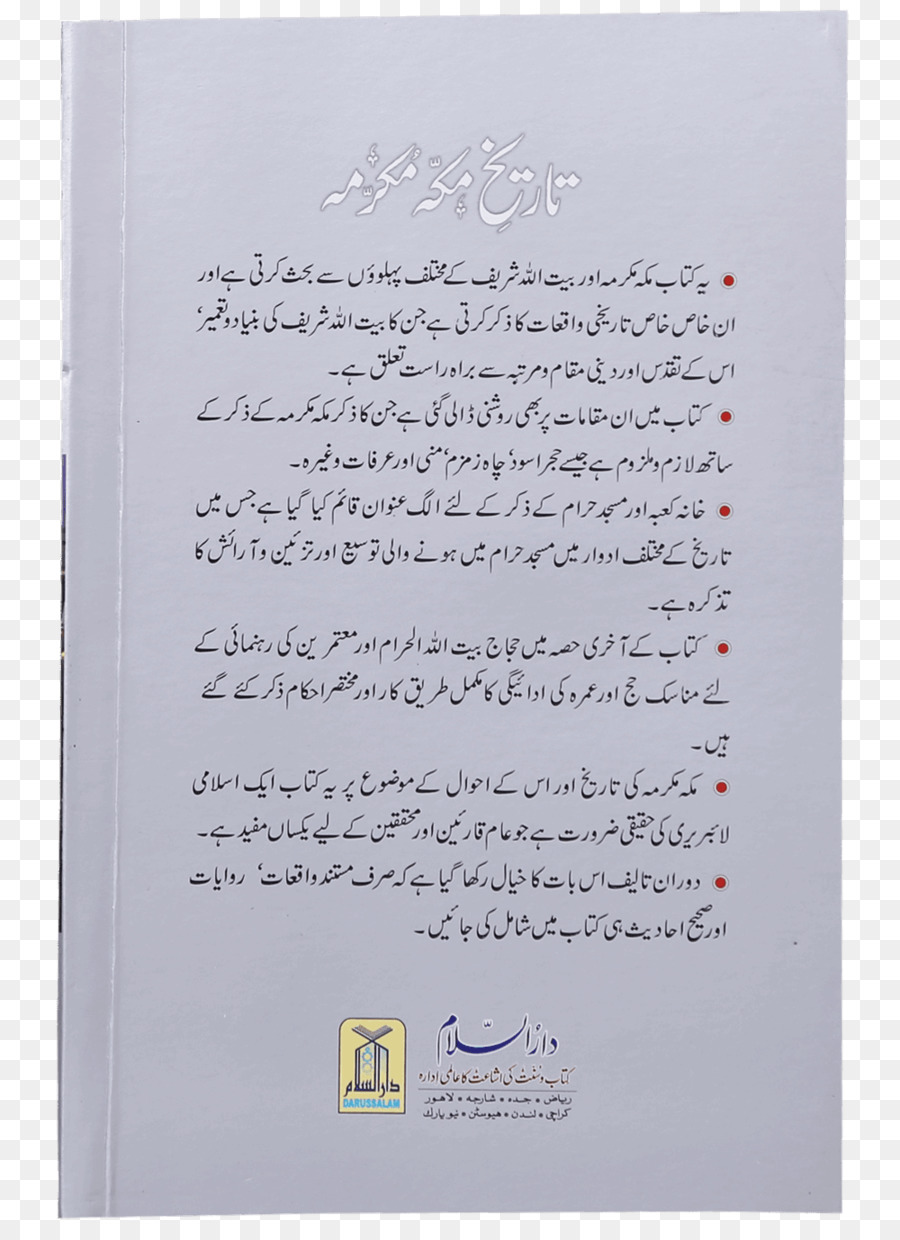 تاریخِ مکّہ مُکرّمہ
● یہ کتاب مکہ مکرمہ اور بیت اللہ شریف کے مختلف پہلوؤں سے بحث کرتی ہے اور
ان خاص خاص تاریخی واقعات کا ذکر کرتی ہے جن کا بیت اللہ شریف کی بنیاد و تعمیر‘
اس کے تقدّس اور دینی مقام و مرتبہ سے براہ راست تعلق ہے۔
● کتاب میں ان مقامات پر بھی روشنی ڈالی گئی ہے جن کا ذکر مکہ مکرمہ کے ذکر کے
ساتھ لازم و ملزوم ہے جیسے حجر اسود‘ چاہ زمزم‘ منی اور عرفات وغیرہ۔
● خانہ کعبہ اور مسجد حرام کے ذکر کے لئے الگ عنوان قائم کیا گیا ہے جس میں
تاریخ کے مختلف ادوار میں مسجد حرام میں ہونے والی توسیع اور تزئین و آرائش کا
تذکرہ ہے۔
● کتاب کے آخری حصہ میں حجاج بیت اللہ الحرام اور معتمرین کی رہنمائی کے
لئے مناسک حج اور عمرہ کی ادائیگی کا مکمل طریق کار اور مختصر احکام ذکر کئے گئے
ہیں۔
● مکہ مکرمہ کی تاریخ اور اس کے احوال کے موضوع پر یہ کتاب ایک اسلامی
لائبریری کی حقیقی ضرورت ہے جو عام قارئین اور محققین کے لیے یکساں مفید ہے۔
● دوران تالیف اس بات کا خیال رکھا گیا ہے کہ صرف مستند واقعات‘ روایات
اور صحیح احادیث ہی کتاب میں شامل کی جائیں۔
دارُالسّلام
کتاب و سُنّت کی اشاعت کا عالمی ادارہ
ریاض * جدہ * شارجہ * لاھور
کراچی * لندن * ھیوسٹن * نیو یارک
دارالسلام
DARUSSALAM